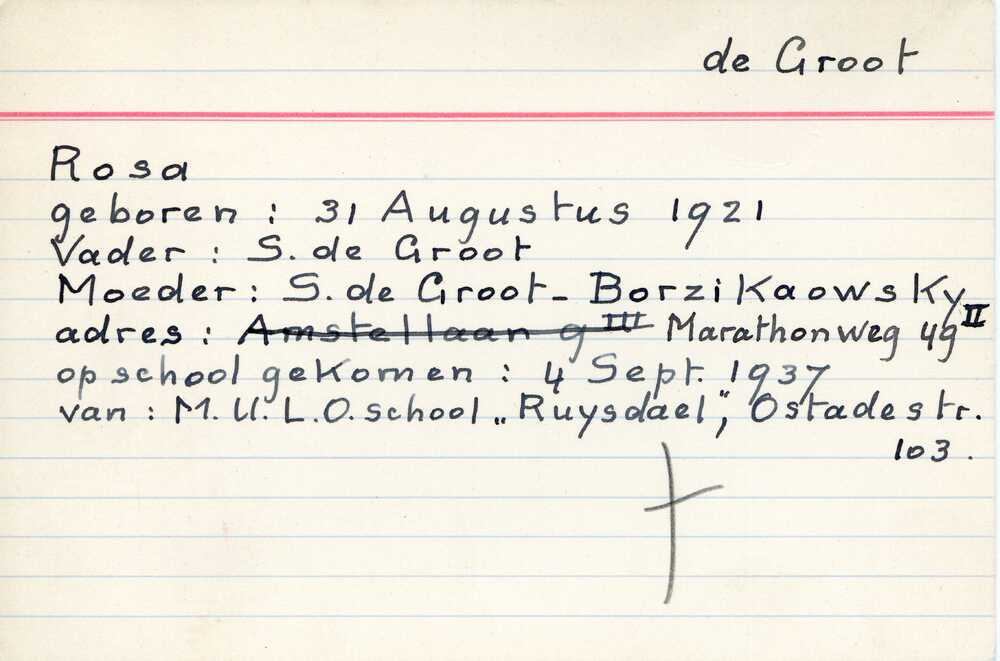 de Groot
Rosa
geboren : 31 Augustus 1921
Vader : S. de Groot
Moeder : S. de Groot - Borzikaowsky
adres : Amstellaan 9 III Marathonweg 49 II
op school gekomen : 4 Sept. 1937
van : M.U.L.O. school „Ruysdael”, Ostadestr.
103.